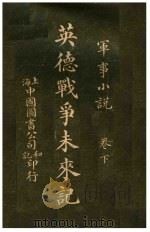 軍事小說 卷下
英德戰爭未來記
上海中國圖書公司和記印行